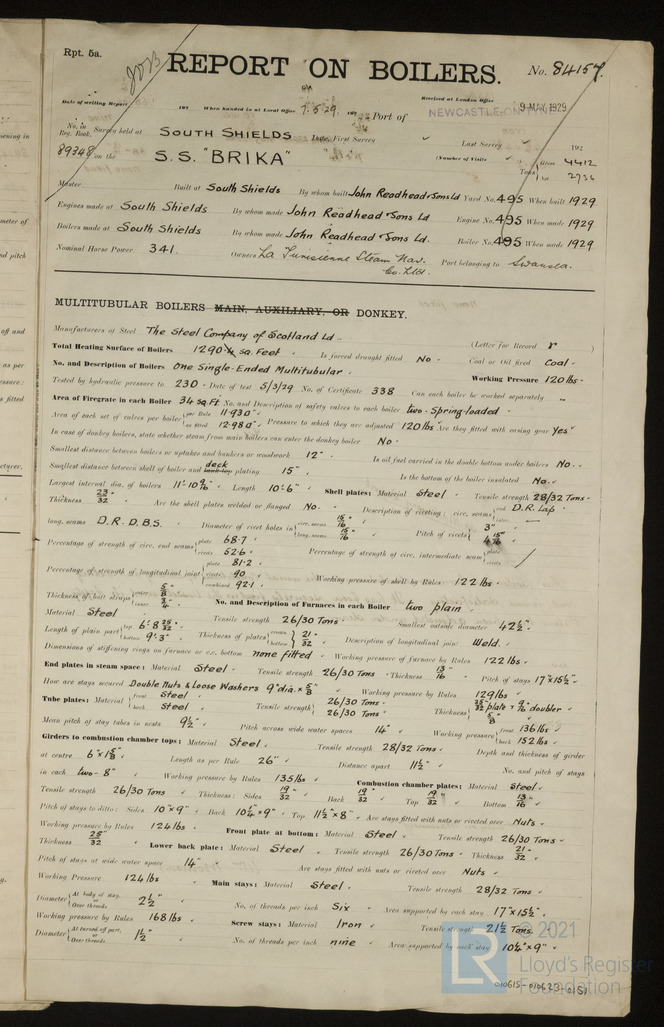 Rpt. 5a.
JOB
REPORT ON BOILERS.
No. 84157.
Date of writing Report 192 When handed in at Local Office 7.5.29. 192 Port of NEWCASTLE-ON-TYNE
Received at London Office 9 MAY 1929
No. in Reg. Book. Survey held at SOUTH SHIELDS Date, First Survey Last Survey 192
89348 on the S.S. "BRIKA" (Number of Visits) Tons Gross 4412 Net 2736
Master Built at South Shields By whom built John Readhead & Sons Ld Yard No. 495 When built 1929
Engines made at South Shields By whom made John Readhead & Sons Ld Engine No. 495 When made 1929
Boilers made at South Shields By whom made John Readhead & Sons Ld. Boiler No. 495 When made 1929
Nominal Horse Power 341. Owners La Tunisienne Steam Nav. Co. Ltd. Port belonging to Swansea.
MULTITUBULAR BOILERS MAIN, AUXILIARY, OR DONKEY.
Manufacturers of Steel The Steel Company of Scotland Ld (Letter for Record r )
Total Heating Surface of Boilers 1290.4 sq. Feet Is forced draught fitted No. Coal or Oil fired Coal.
No. and Description of Boilers One Single-Ended Multitubular. Working Pressure 120 lbs.
Tested by hydraulic pressure to 230. Date of test 5/3/29 No. of Certificate 338 Can each boiler be worked separately -
Area of Firegrate in each Boiler 34 sq. Ft. No. and Description of safety valves to each boiler two-Spring-loaded
Area of each set of valves per boiler per Rule 11.93□" as fitted 12.98□" Pressure to which they are adjusted 120 lbs. Are they fitted with easing gear Yes
In case of donkey boilers, state whether steam from main boilers can enter the donkey boiler No.
Smallest distance between boilers or uptakes and bunkers or woodwork 12" Is oil fuel carried in the double bottom under boilers No.
Smallest distance between shell of boiler and deck plating 15" Is the bottom of the boiler insulated No.
Largest internal dia. of boilers 11'-10 9/16" Length 10'-6" Shell plates: Material Steel Tensile strength 28/32 Tons.
Thickness 23/32" Are the shell plates welded or flanged No. Description of riveting: circ. seams end D.R. Lap. inter.
long. seams D.R. D.B.S. Diameter of rivet holes in circ. seams 15/16" long. seams 15/16" Pitch of rivets 3" 4 15/16"
Percentage of strength of circ. end seams plate 68.7 rivets 52.6 Percentage of strength of circ. intermediate seam plate rivets
Percentage of strength of longitudinal joint plate 81.2 rivets 90 combined 92.1 Working pressure of shell by Rules 122 lbs.
Thickness of butt straps outer 5/8" inner 3/4" No. and Description of Furnaces in each Boiler two plain.
Material Steel Tensile strength 26/30 Tons Smallest outside diameter 42 1/2".
Length of plain part top 6'-8 25/32" bottom 9'-3" Thickness of plates crown bottom 21/32" Description of longitudinal joint Weld.
Dimensions of stiffening rings on furnace or c.c. bottom none fitted Working pressure of furnace by Rules 122 lbs.
End plates in steam space: Material Steel Tensile strength 26/30 Tons Thickness 13/16" Pitch of stays 17"x15 1/2"
How are stays secured Double Nuts & Loose Washers 9"dia. x 5/8" Working pressure by Rules 129 lbs
Tube plates: Material front Steel back Steel Tensile strength 26/30 Tons. 26/30 Tons. Thickness 25/32" plate & 9/16" doubler 5/8"
Mean pitch of stay tubes in nests 9 1/2" Pitch across wide water spaces 14" Working pressure front 136 lbs back 152 lbs
Girders to combustion chamber tops: Material Steel Tensile strength 28/32 Tons Depth and thickness of girder
at centre 6"x1 5/8" Length as per Rule 26" Distance apart 11 1/2" No. and pitch of stays
in each two-8" Working pressure by Rules 135 lbs Combustion chamber plates: Material Steel
Tensile strength 26/30 Tons Thickness: Sides 19/32" Back 19/32" Top 19/32" Bottom 13/16"
Pitch of stays to ditto: Sides 10"x9" Back 10 1/4"x9" Top 11 1/2"x8" Are stays fitted with nuts or riveted over Nuts
Working pressure by Rules 124 lbs Front plate at bottom: Material Steel Tensile strength 26/30 Tons
Thickness 25/32" Lower back plate: Material Steel Tensile strength 26/30 Tons Thickness 21/32"
Pitch of stays at wide water space 14" Are stays fitted with nuts or riveted over Nuts
Working Pressure 124 lbs Main stays: Material Steel. Tensile strength 28/32 Tons
Diameter At body of stay, or Over threads 2 1/2" No. of threads per inch Six Area supported by each stay 17"x15 1/2"
Working pressure by Rules 168 lbs Screw stays: Material Iron Tensile strength 21 1/2 Tons.
Diameter At turned off part, or Over threads 1 1/2" No. of threads per inch nine Area supported by each stay 10 1/4"x9"
© 2021
LR
Lloyd's Register
Foundation
010615-010623-0151